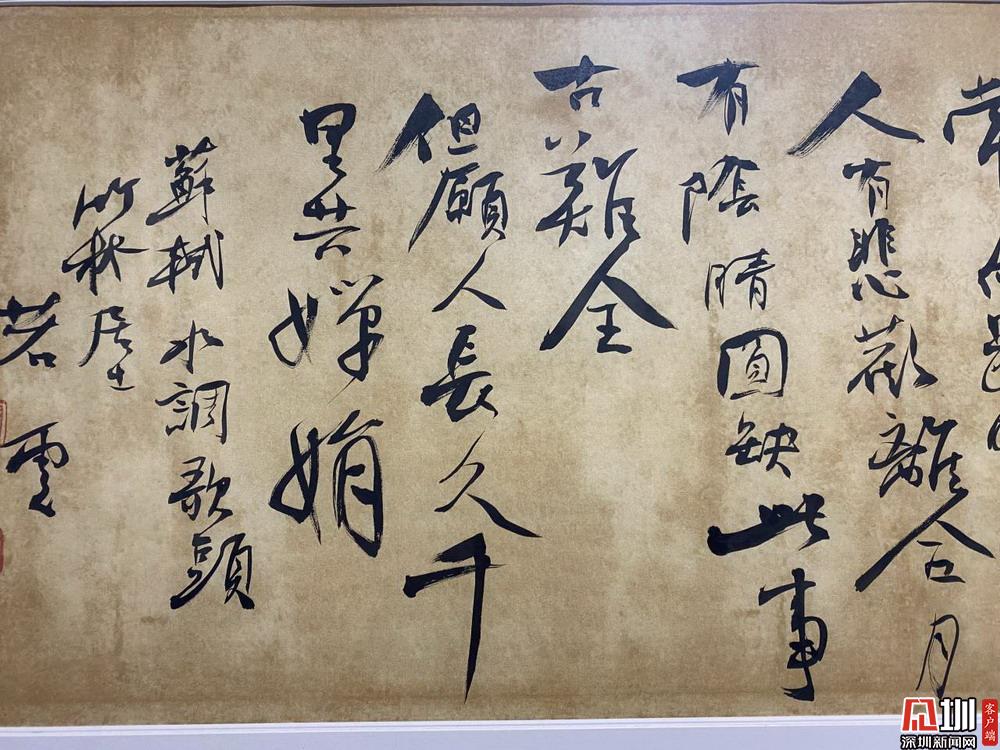 人有悲歡離合月
有陰晴圓缺此事
古難全
但願人長久千
里共嬋娟
蘇軾 水調歌頭
竹林居士
若雲
见圳
客户端
深圳新闻网